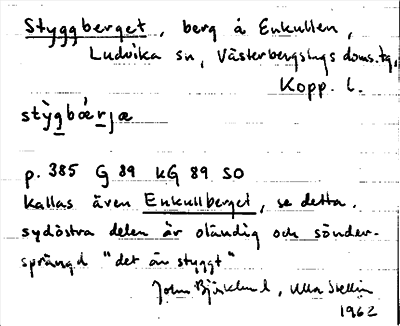 Styggberget, berg å Enkullen,
Ludvika sn, Västerbergslags doms.tg,
Kopp. l.
stỳgbæ̀rjæ
p. 385 G 89 kG 89 SO
kallas även Enkullberget, se detta.
sydöstra delen är oländig och sönder-
sprängd "det än styggt"
John Björklund, Ulla Stellin
1962